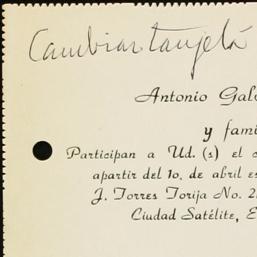 Cambiar tarjeta
Antonio Gal
y fami
Participan a Ud. (s) el c
apartir del 1o. de abril es
J. Torres Torija No. 2
Ciudad Satélite, E